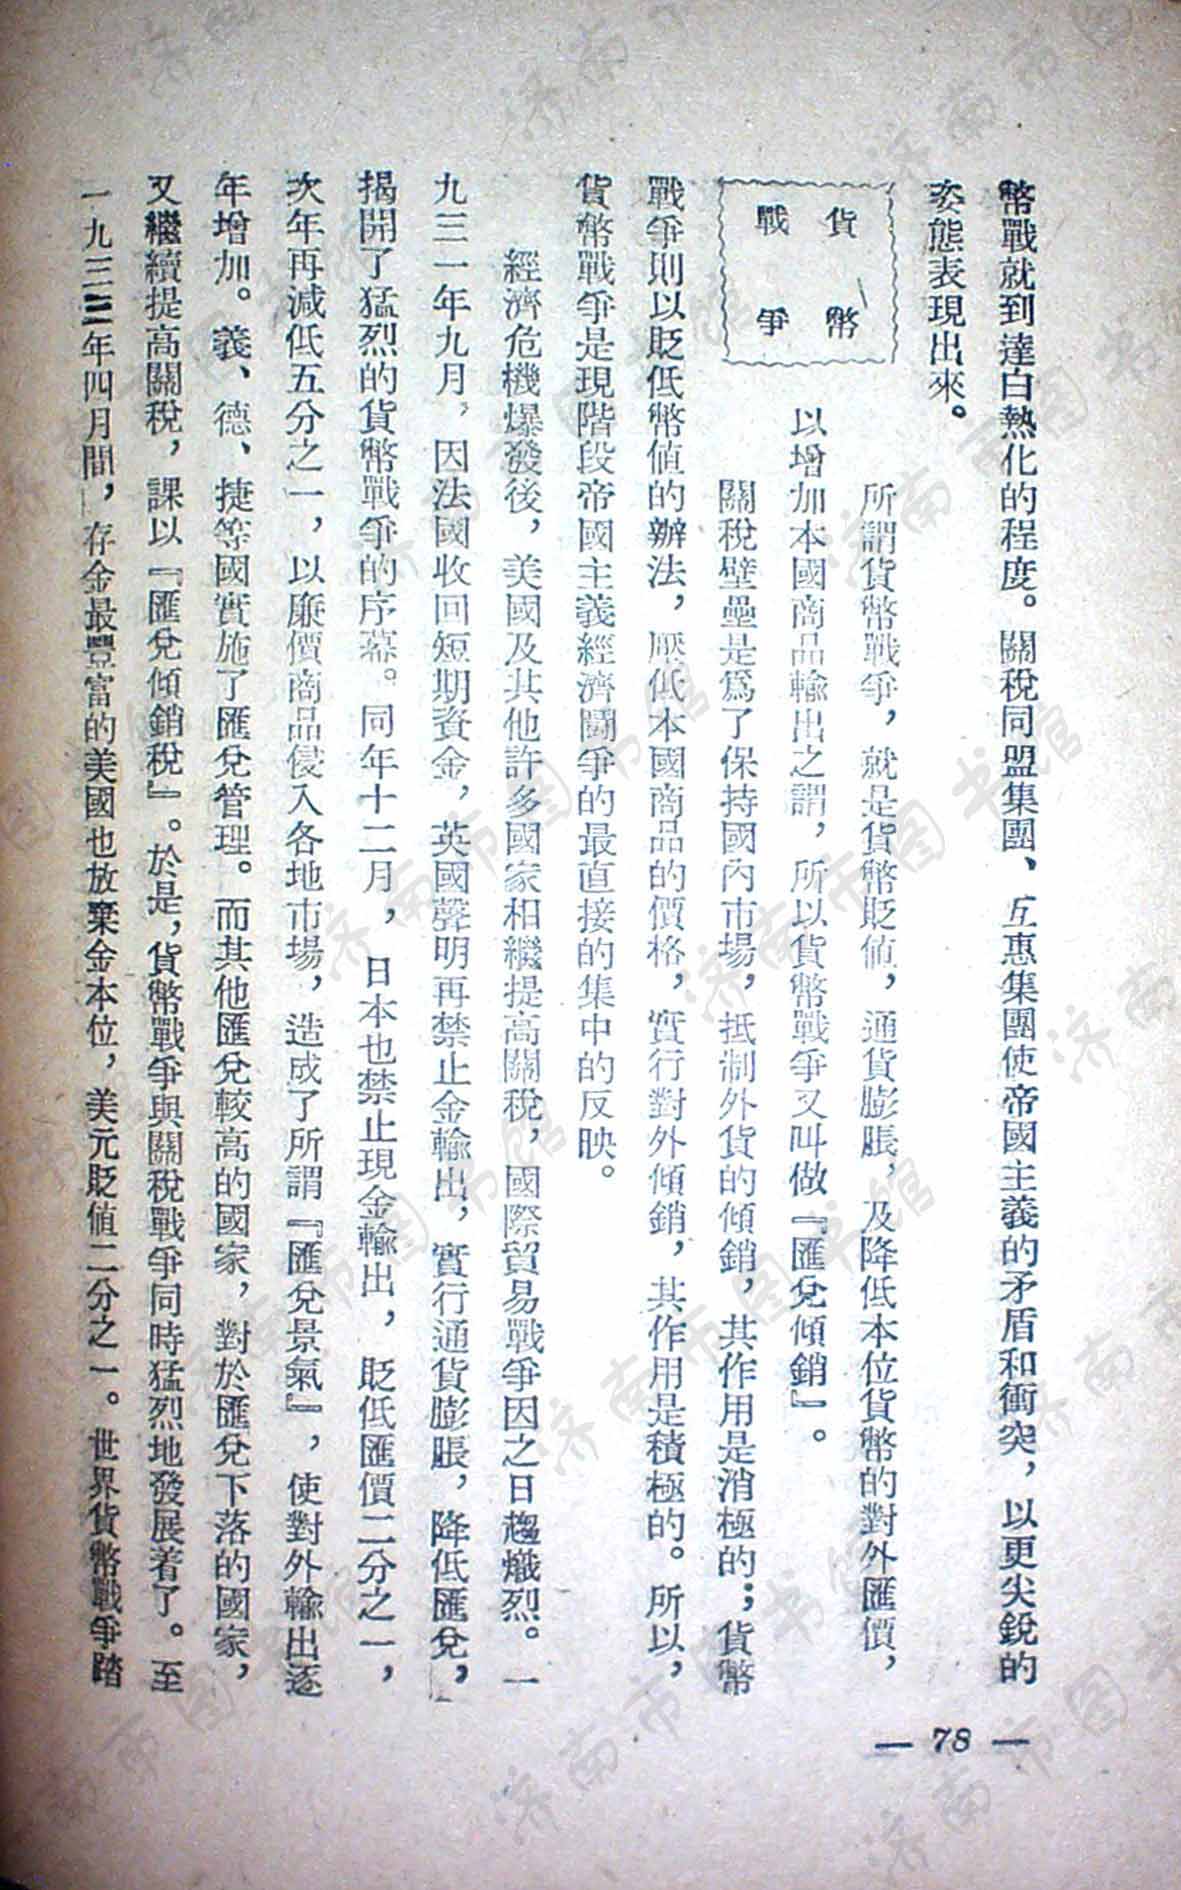 幣戰就到達白熱化的程度。關稅同盟集團、互惠集團使帝國主義的矛盾和衝突，以更尖銳的
姿態表現出來。
貨幣
戰爭
所謂貨幣戰爭，就是貨幣貶值，通貨膨脹，及降低本位貨幣的對外匯價，
以增加本國商品輸出之謂，所以貨幣戰爭又叫做『匯兌傾銷』。
關稅壁壘是爲了保持國內市場，抵制外貨的傾銷，其作用是消極的；貨幣
戰爭則以貶低幣值的辦法，壓低本國商品的價格，實行對外傾銷，其作用是積極的。所以，
貨幣戰爭是現階段帝國主義經濟鬪爭的最直接的集中的反映。
經濟危機爆發後，美國及其他許多國家相繼提高關稅，國際貿易戰爭因之日趨熾烈。一
九三一年九月，因法國收回短期資金，英國聲明再禁止金輸出，實行通貨膨脹，降低匯兌，
揭開了猛烈的貨幣戰爭的序幕。同年十二月，日本也禁止現金輸出，貶低匯價二分之一，
次年再減低五分之一，以廉價商品侵入各地市場，造成了所謂『匯兌景氣』，使對外輸出逐
年增加。義、德、捷等國實施了匯兌管理。而其他匯兌較高的國家，對於匯兌下落的國家，
又繼續提高關稅，課以『匯兌傾銷稅』。於是，貨幣戰爭與關稅戰爭同時猛烈地發展着了。至
一九三三年四月間，存金最豐富的美國也放棄金本位，美元貶值二分之一。世界貨幣戰爭踏
— 78 —
济南市图书馆